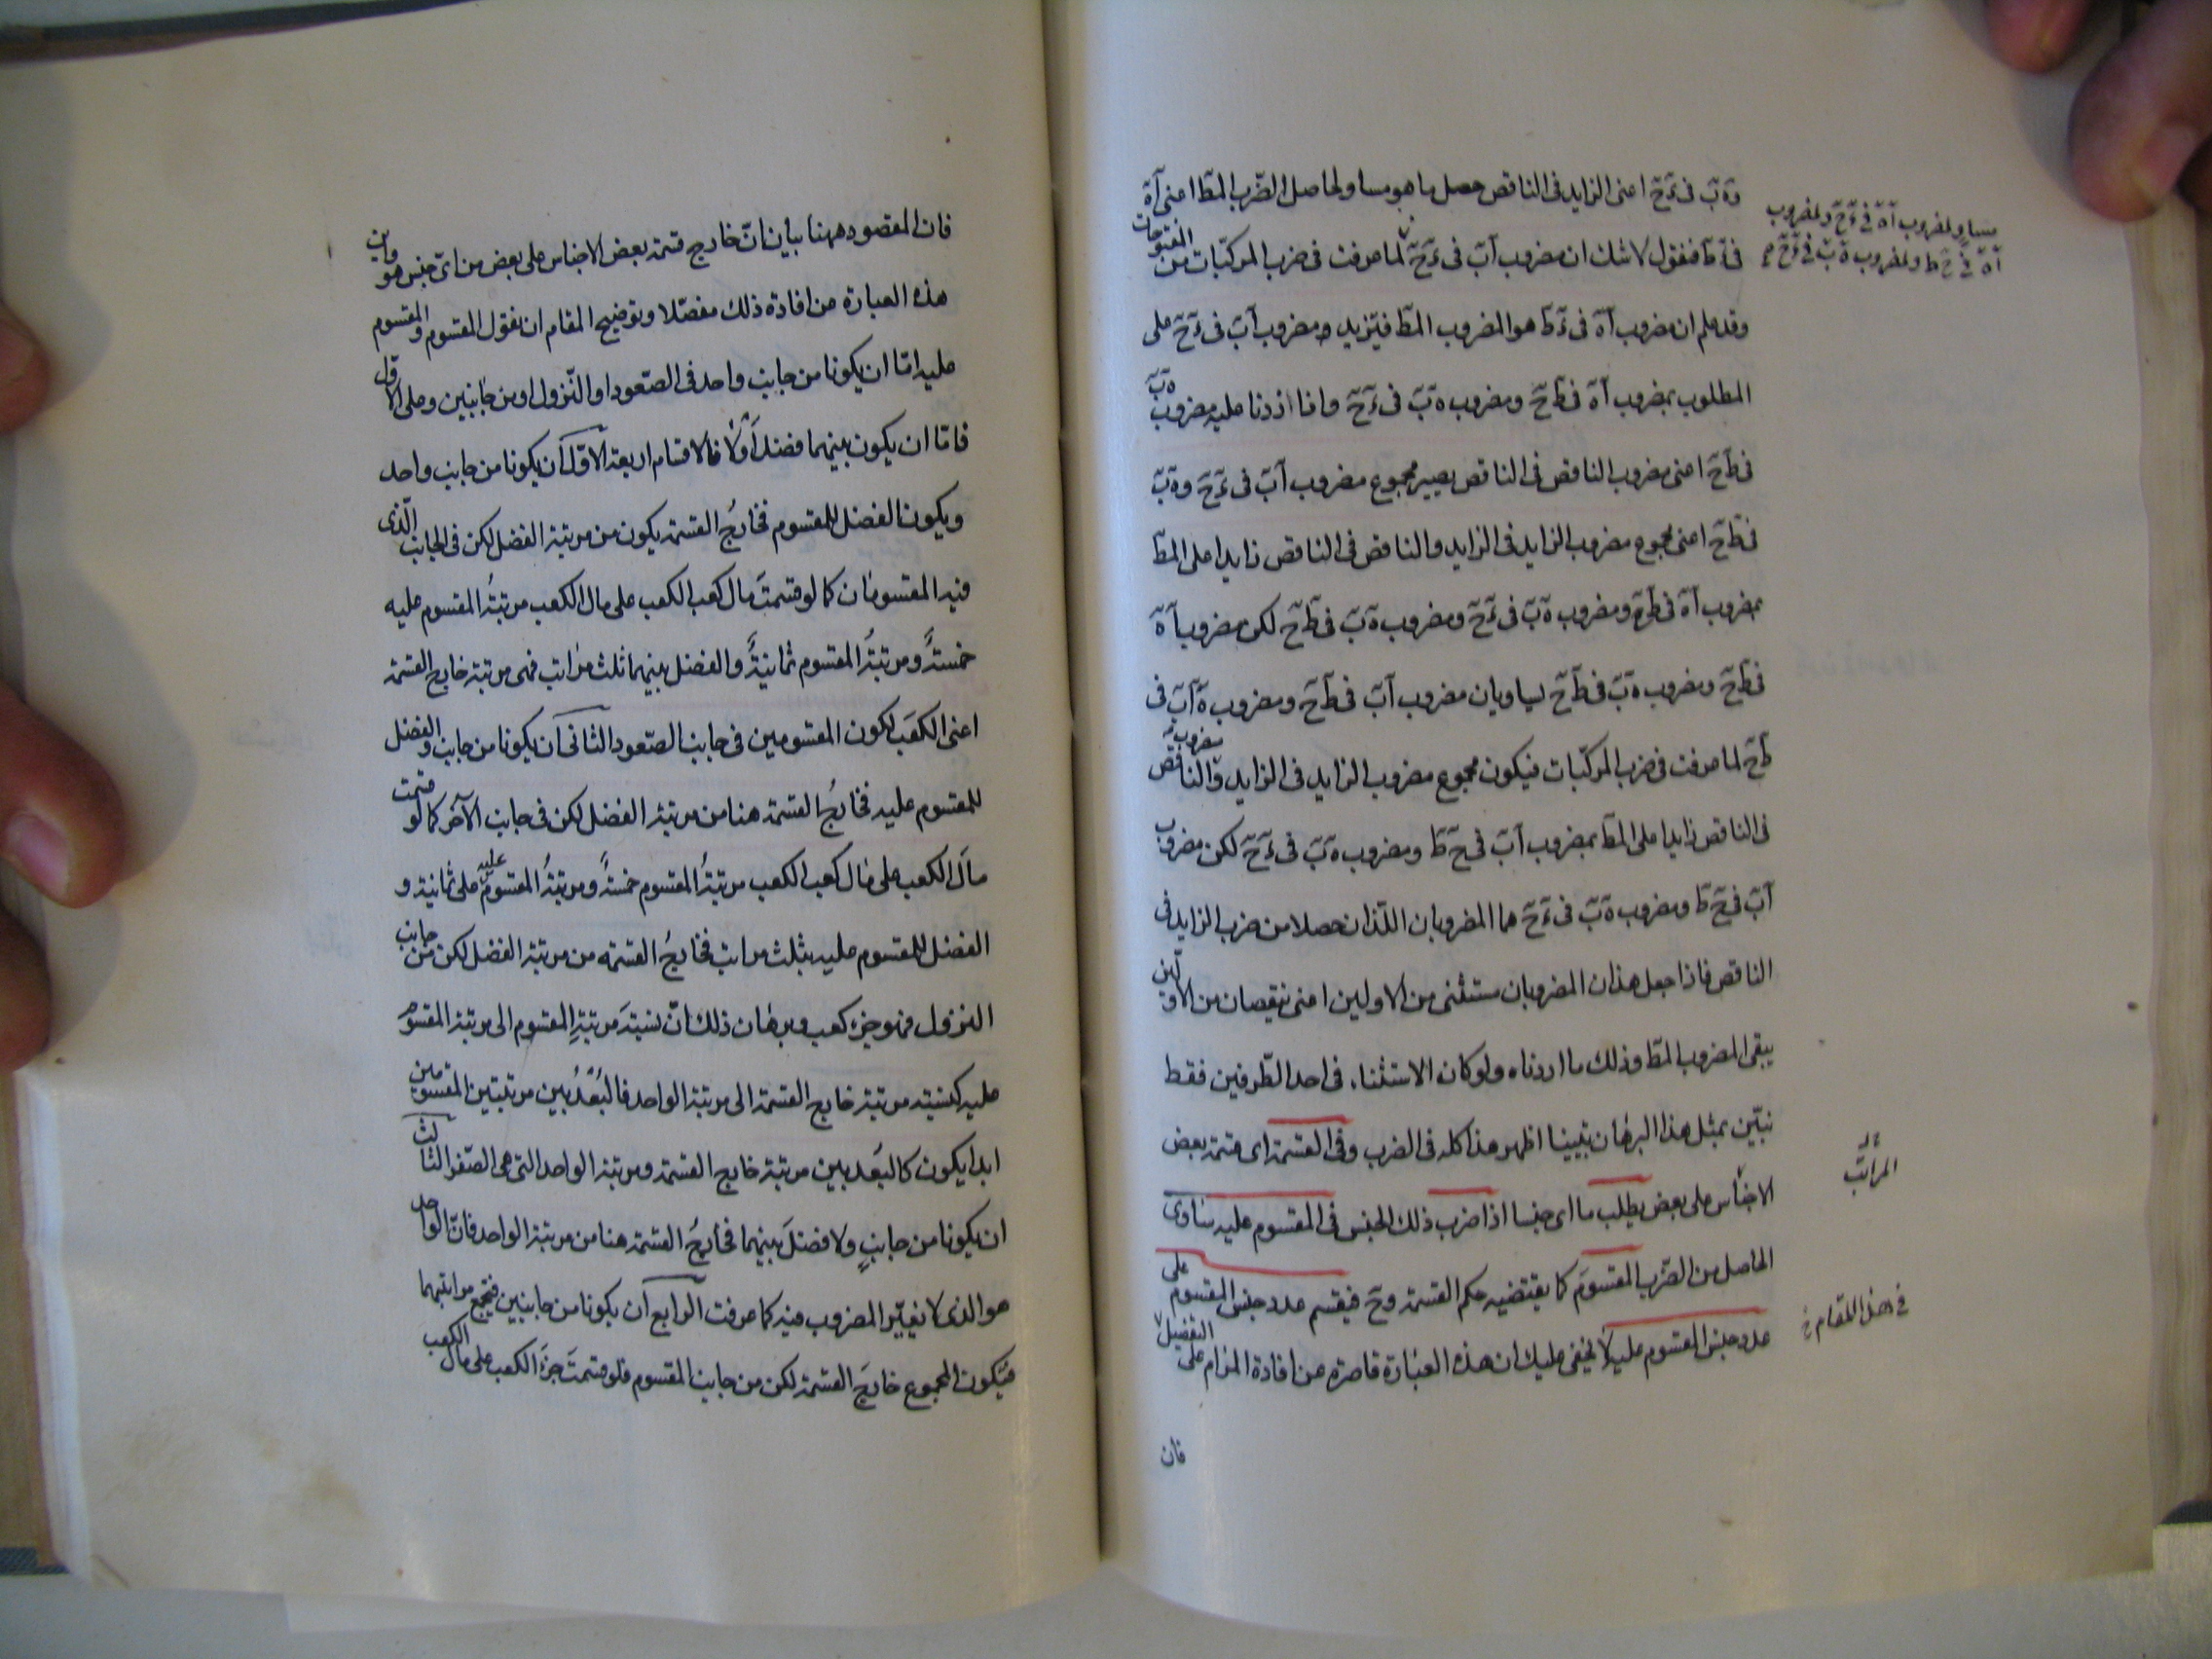 وة ب فى ء ح اعنى الزايد فى الناقص حصل ما هو مساو لحاصل الضرب المط اعنى آة
فى ء ط فنقول لا شك ان مضروب آب فى ء ح لما عرفت فى ضرب المركبات من المفتوحات
وقد علم ان مضروب آة فى ء ط هو المضروب المط فيزيد مضروب آب فى ء ح على
المطلوب بمضروب آة فى ط ح ومضروب ة ب فى ء ح واذا زدنا عليه مضروب ة ب
فى ط ح اعنى مضروب الناقص فى الناقص يصير مجموع مضروب آب فى ء ح وة ب
فى ط ح اعنى مجموع مضروب الزايد فى الزايد والناقص فى الناقص زايدا على المط
بمضروب آة فى ط ح ومضروب ة ب فى ء ح ومضروب ة ب فى ط ح لكن مضروبا آة
فى ط ح ومضروب ة ب فى ط ح يساويان مضروب آب فى ط ح
ط ح لما عرفت فى ضرب المركبات فيكون مجموع مضروب الزايد فى الزايد ومضروب الناقص
فى الناقص زايدا على المط بمضروب آب فى ح ط ومضروب ة ب فى ء ح لكن مضروب
آب فى ح ط ومضروب ة ب فى ء ح هما المضروبان اللذان حصلا من ضرب الزايد فى
الناقص فاذا جعل هذان المضروبان مستثنى من الاولين اعنى ينقصان من الاولين
يبقى المضروب المط وذلك ما اردناه ولو كان الاستثناء فى احد الطرفين فقط
نبين بمثل هذا البرهان تبيينا اظهر هذا كله فى الضرب وفى القسمة اى قسمة بعض
الاجناس على بعض يطلب ما اى جنسا اذا ضرب ذلك الجنس فى المقسوم عليه ساوى
الحاصل من الضرب المقسوم كما يقتضيه حكم القسمة وح فيقسم عدد جنس المقسوم على
عدد جنس المقسوم عليه لا يخفى عليك ان هذه العبارة قاصرة عن افادة المرام على التفصيل
فان
مساو لمضروب آة فى ء ح ولمضروب
آة فى ح ط ولمضروب ة ب فى ء ح
المراتب
فى هذا المقام
فان المقصود ههنا بيان ان خارج قسمة بعض الاجناس على بعض من اى جنس هو واين
هذه العبارة من افادة ذلك مفصلا وتوضيح المقام ان نقول المقسوم والمقسوم
عليه اما ان يكونا من جانب واحد فى الصعود او النزول او من جانبين وعلى الاول
فاما ان يكون بينهما فضل أو لا فالاقسام اربعة الاول ان يكونا من جانب واحد
ويكون الفضل للمقسوم فخارج القسمة يكون من مرتبة الفضل لكن فى الجانب الذى
فيه المقسومان كما لو قسمت مال كعب الكعب على مال الكعب مرتبة المقسوم عليه
خمسة ومرتبة المقسوم ثمانية والفضل بينهما ثلث مراتب فهى مرتبة خارج القسمة
اعنى الكعب لكون المقسومين فى جانب الصعود الثانى ان يكونا من جانب والفضل
للمقسوم عليه فخارج القسمة هنا من مرتبة الفضل لكن فى جانب الآخر كما لو قسمت
مال الكعب على مال كعب الكعب مرتبة المقسوم خمسة ومرتبة المقسوم عليه على ثمانية و
الفضل للمقسوم عليه بثلث مراتب فخارج القسمة من مرتبة الفضل لكن من جانب
النزول فهو جزء كعب وبرهان ذلك ان نسبة مرتبة المقسوم الى مرتبة المقسوم
عليه كنسبة مرتبة خارج القسمة الى مرتبة الواحد فالبعد بين مرتبتين المقسومين
ابدا يكون كالبعد بين مرتبة خارج القسمة ومرتبة الواحد التى هى الصفر الثالث
ان يكونا من جانب ولا فضل بينهما فخارج القسمة هنا من مرتبة الواحد فان الواحد
هو الذى لا يغير المضروب فيه كما عرفت الرابع ان يكونا من جانبين فتجمع مراتبهما
فيكون المجموع خارج القسمة لكن من جانب المقسوم فلو قسمت جزء الكعب على مال الكعب